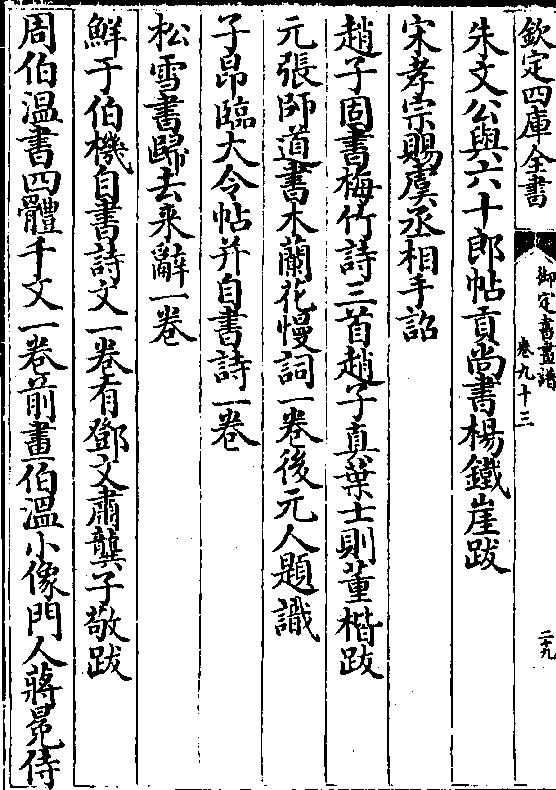 欽定四庫全書
御定書畫譜
卷九十三
二十九
朱文公與六十郎帖貢尚書楊鐵崖跋
宋孝宗賜虞丞相手詔
趙子固書梅竹詩三首趙子真葉士則董楷跋
元張師道書木蘭花慢詞一卷後元人題識
子昂臨大令帖并自書詩一卷
松雪書歸去來辭一卷
鮮于伯機自書詩文一卷有鄧文肅龔子敬跋
周伯溫書四體千文一卷前畫伯溫小像門人蔣冕侍